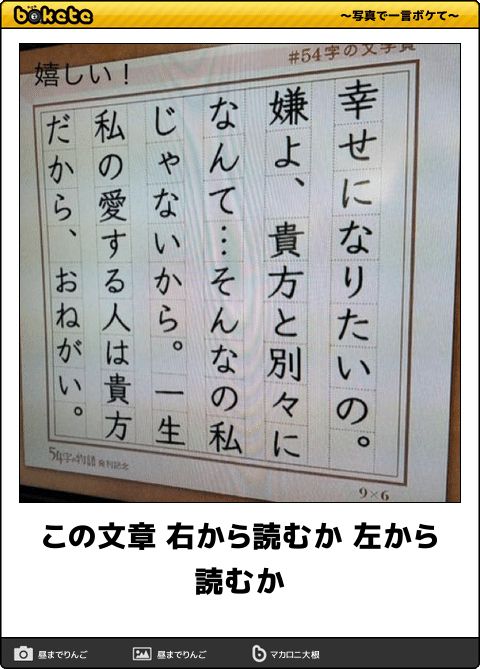 bokete
〜写真で一言ボケて〜
嬉しい！
#54字の文学賞
幸せになりたいの。
嫌よ、貴方と別々に
なんて…そんなの私
じゃないから。一生
私の愛する人は貴方
だから、おねがい。
54字の物語 発刊記念
9×6
この文章 右から読むか 左から
読むか
昼までりんご
昼までりんご
マカロニ大根